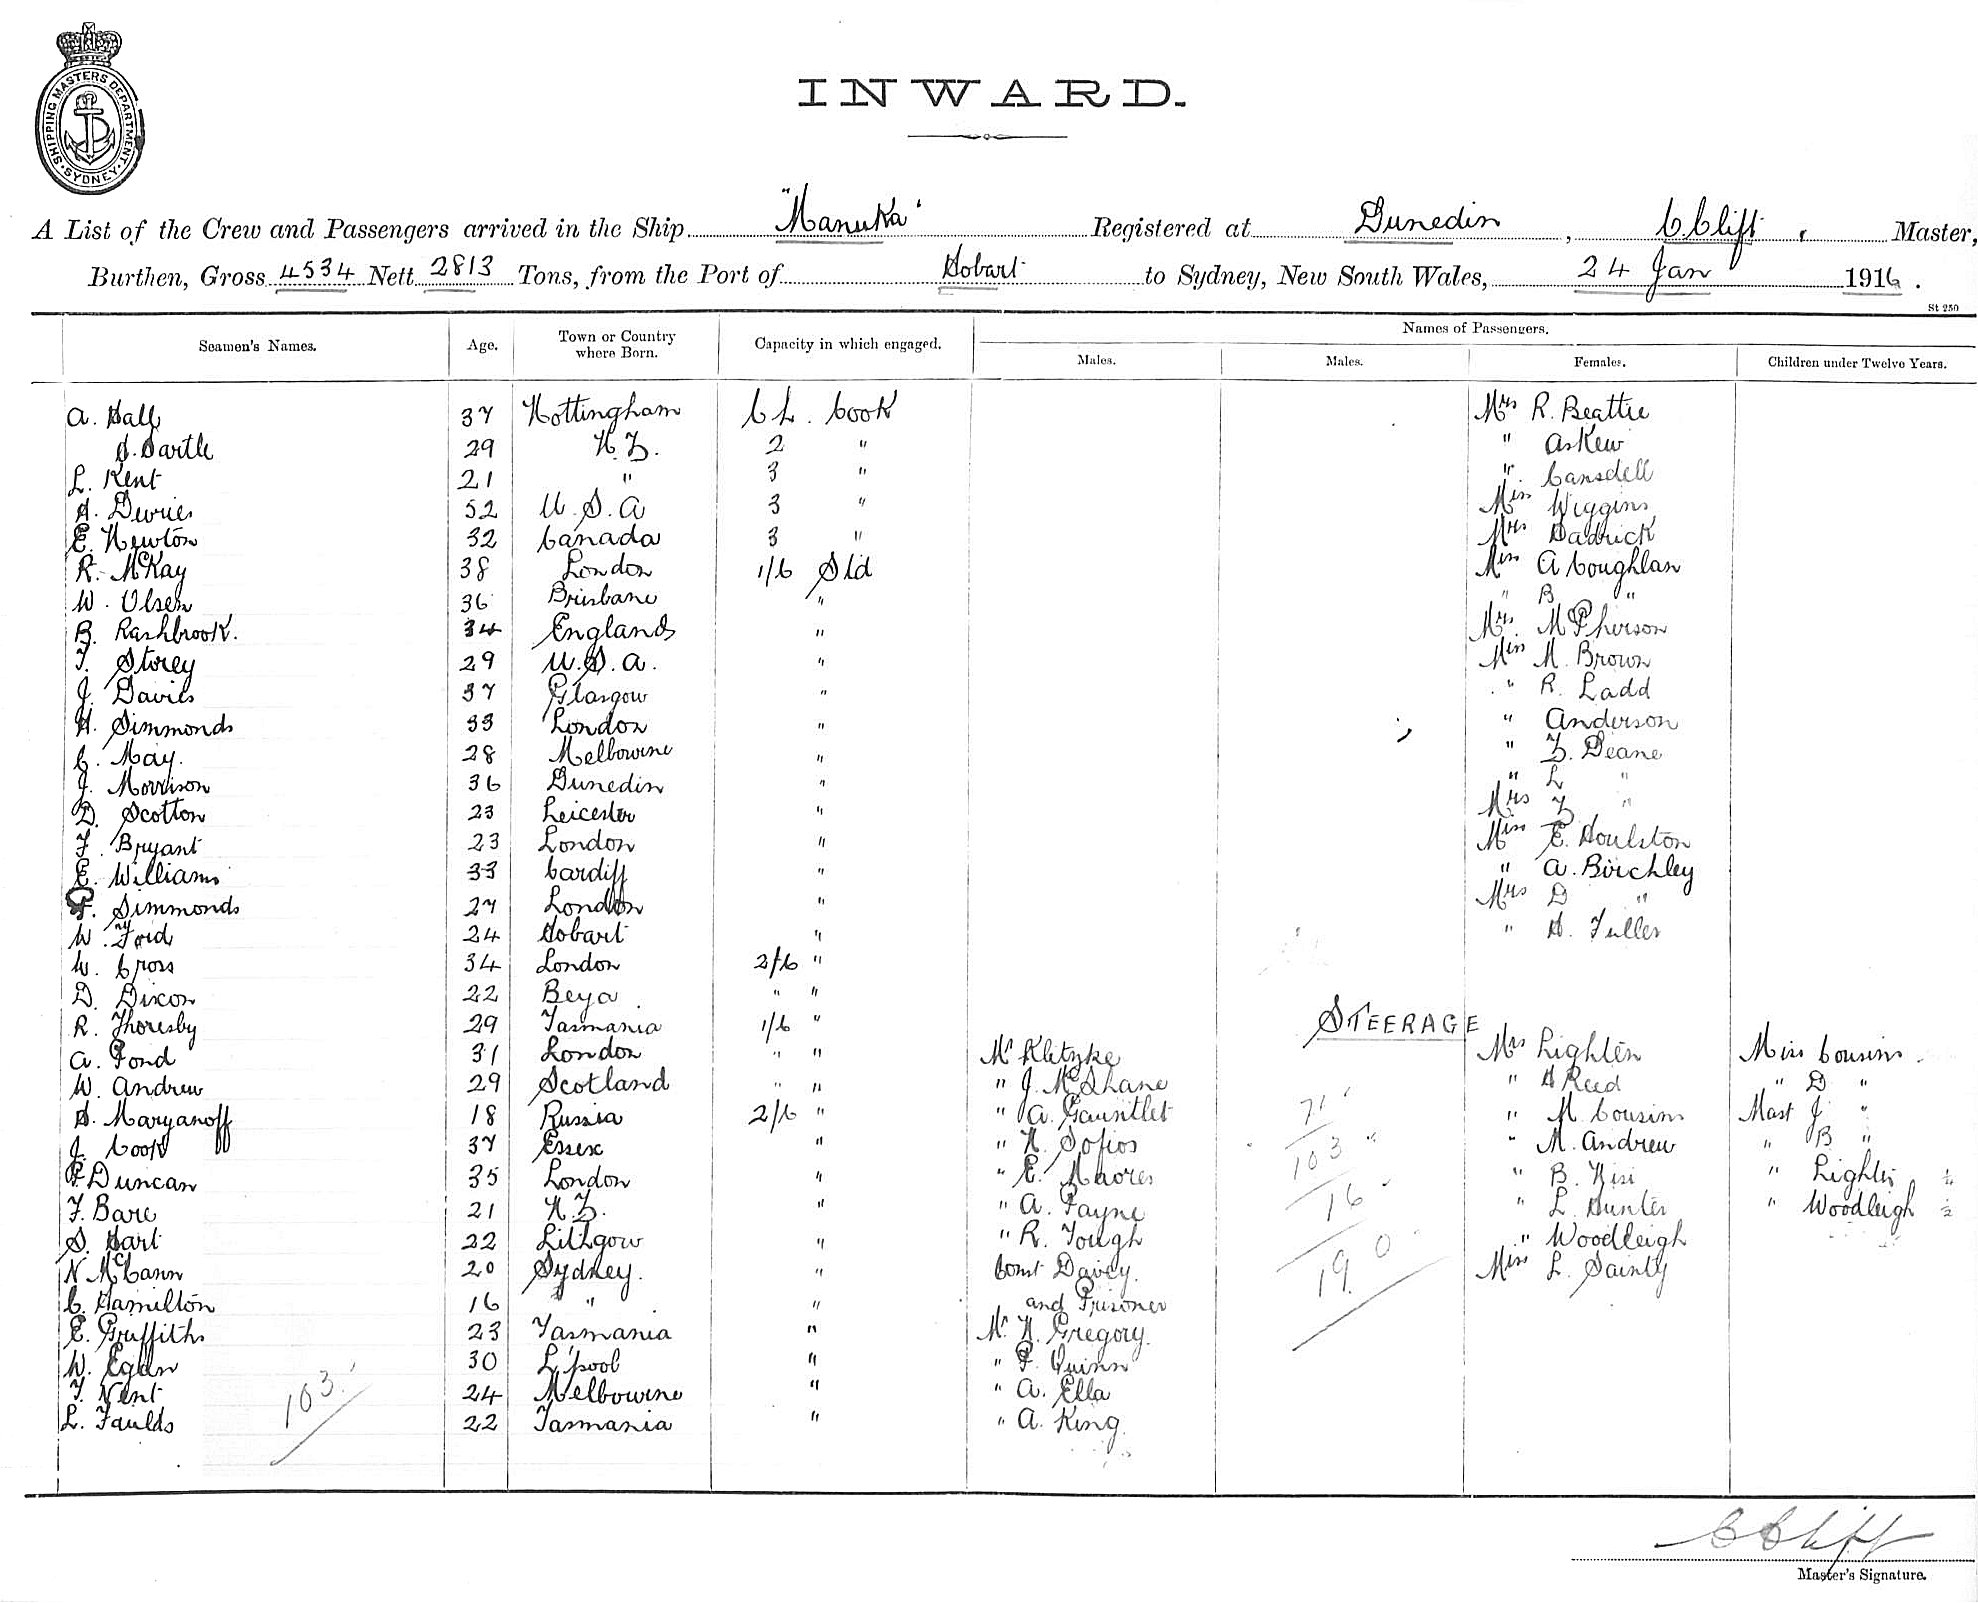 SHIPPING MASTERS DEPARTMENT · SYDNEY ·
INWARD.
A List of the Crew and Passengers arrived in the Ship "Manuka" Registered at Dunedin, C. Clift, Master,
Burthen, Gross 4534 Nett 2813 Tons, from the Port of Hobart to Sydney, New South Wales, 24 Jan 1916.
St 250
Seamen's Names. Age. Town or Country where Born. Capacity in which engaged. Names of Passengers.
Males. Males. Females. Children under Twelve Years.
A. Hall 37 Nottingham Ch. Cook Mrs R. Beattie
H. Hartle 29 N.Z. 2 " " Askew
L. Kent 21 " 3 " " Cansdell
H. Devries 52 U.S.A 3 " Miss Wiggins
E. Newton 32 Canada 3 " Mrs Dadrick
R. McKay 38 London 1/6 Std Miss A Coughlan
W. Olsen 36 Brisbane " " B "
B. Rashbrook. 34 England " Mrs. McPherson
T. Storey 29 U.S.A. " Miss M. Brown
J. Davies 37 Glasgow " " R. Ladd
H. Simmonds 33 London " " Anderson
C. May. 28 Melbourne " " Z. Deane
J. Morrison 36 Dunedin " " L "
D. Scotton 23 Leicester " Mrs Z "
F. Bryant 23 London " Miss E. Houlston
E. Williams 33 Cardiff " " A. Birchley
F. Simmonds 27 London " Mrs D "
W. Ford 24 Hobart " " H. Fuller
W. Cross 34 London 2/6 "
D. Dixon 22 Beya " "
STEERAGE
R. Thoresby 29 Tasmania 1/6 " Mrs Lighten Miss Cousins
A. Pond 31 London " " Mr Klitzke " H Reed " D "
W. Andrew 29 Scotland " " " J. McShane " M Cousins Mast J "
H. Maryanoff 18 Russia 2/6 " " A. Gauntlet 71 " M. Andrew " B "
J. Cook 37 Essex " " N. Sofios 103 " B. Nisi " Lighten
P. Duncan 35 London " " E. Maores 16 " L. Hunter " Woodleigh
F. Bare 21 N.Z. " " A. Payne 190 " Woodleigh
S. Hart 22 Lithgow " " R. Tough Miss L. Sainty
N McCann 20 Sydney. " Const Davey.
C. Hamilton 16 " " and Prisoner
E. Griffiths 23 Tasmania " Mr. N. Gregory.
W. Egan 30 L'pool " " P. Quinn
T. Nent 24 Melbourne " " A. Ella
L. Faulds 22 Tasmania " " A. King.
103
C Clift
Master's Signature.